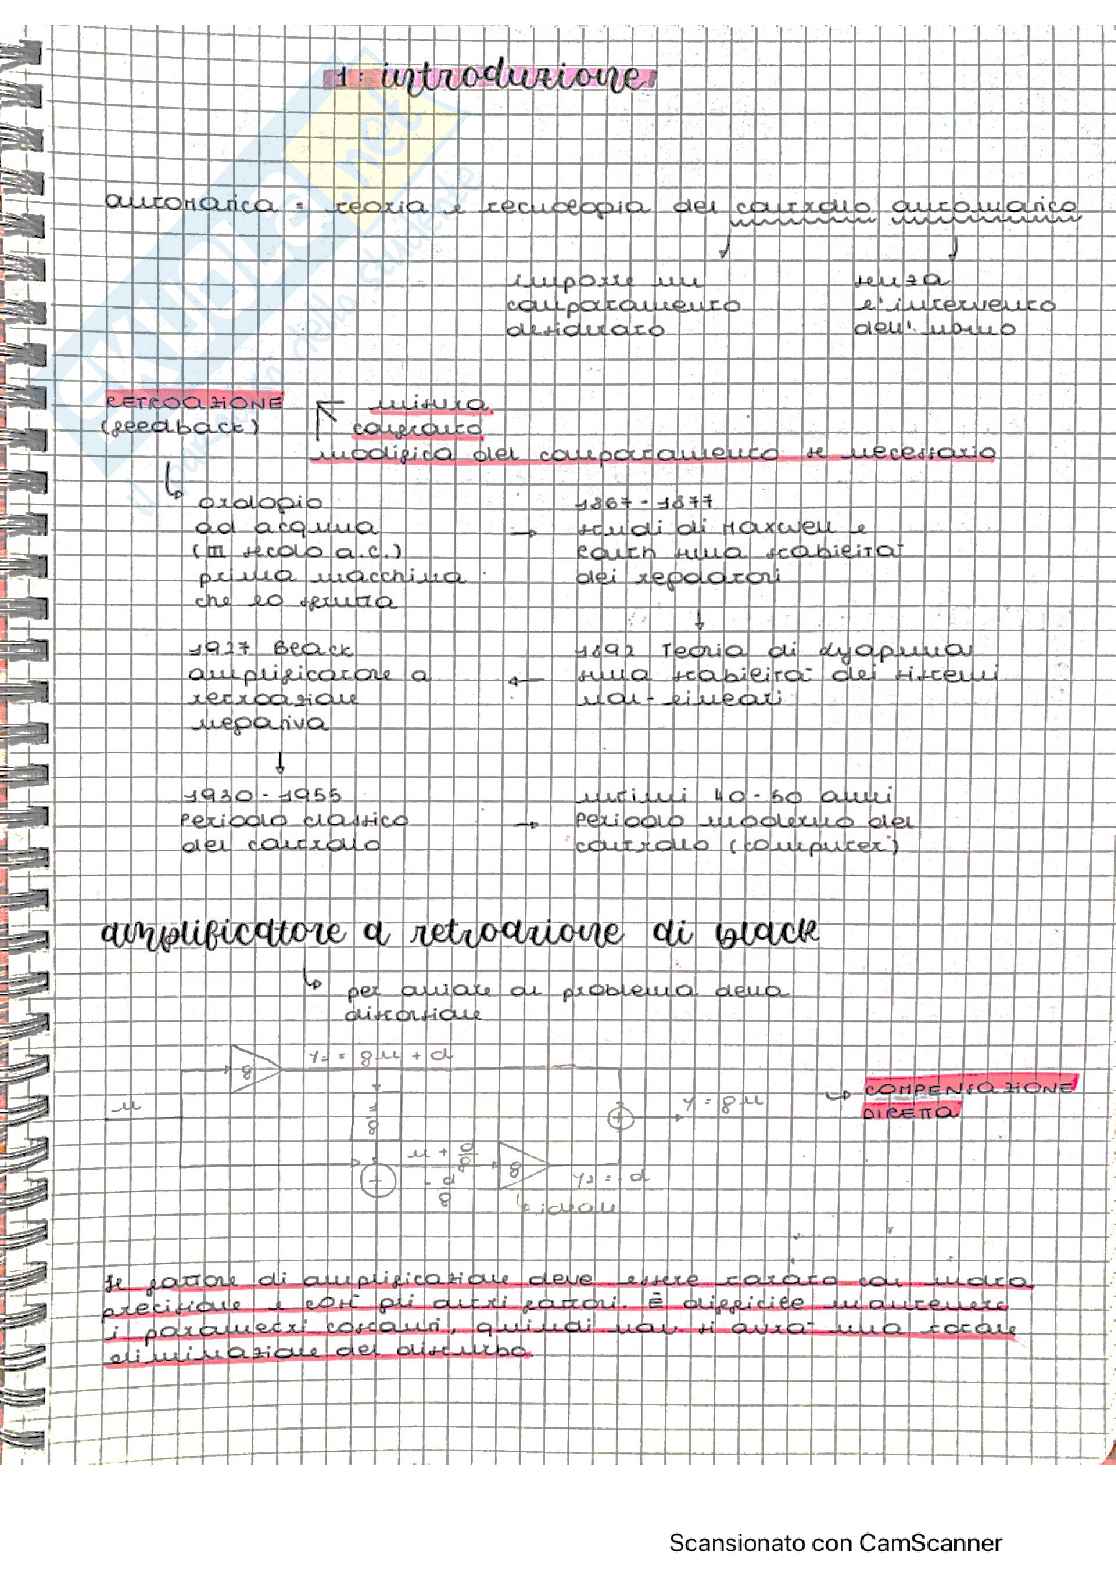 1: introduzione
automatica = teoria e tecnologia del controllo automatico
imporre un
comportamento
desiderato
senza
l'intervento
dell'uomo
RETROAZIONE
(feedback)
misura
confronto
modifica del comportamento se necessario
orologio
ad acqua
(III secolo a.C.)
prima macchina
che lo sfrutta
1867-1877
studi di Maxwell e
Routh sulla stabilità
dei regolatori
1892 Teoria di Lyapunov
sulla stabilità dei sistemi
non-lineari
1927 Black
amplificatore a
retroazione
negativa
1930-1955
Periodo classico
del controllo
ultimi 40-50 anni
Periodo moderno del
controllo (computer)
amplificatore a retroazione di black
per ovviare al problema della
distorsione
g
y₁ = gu + d
u
1/g
u + d/g
- d/g
g
y₂ = -d
ideale
y = gu
COMPENSAZIONE
DIRETTA
Il fattore di amplificazione deve essere tarato con molta
precisione e così gli altri fattori. È difficile mantenere
i parametri costanti, quindi non si avrà una totale
eliminazione del disturbo.
SKUOLA.net
Scansionato con CamScanner